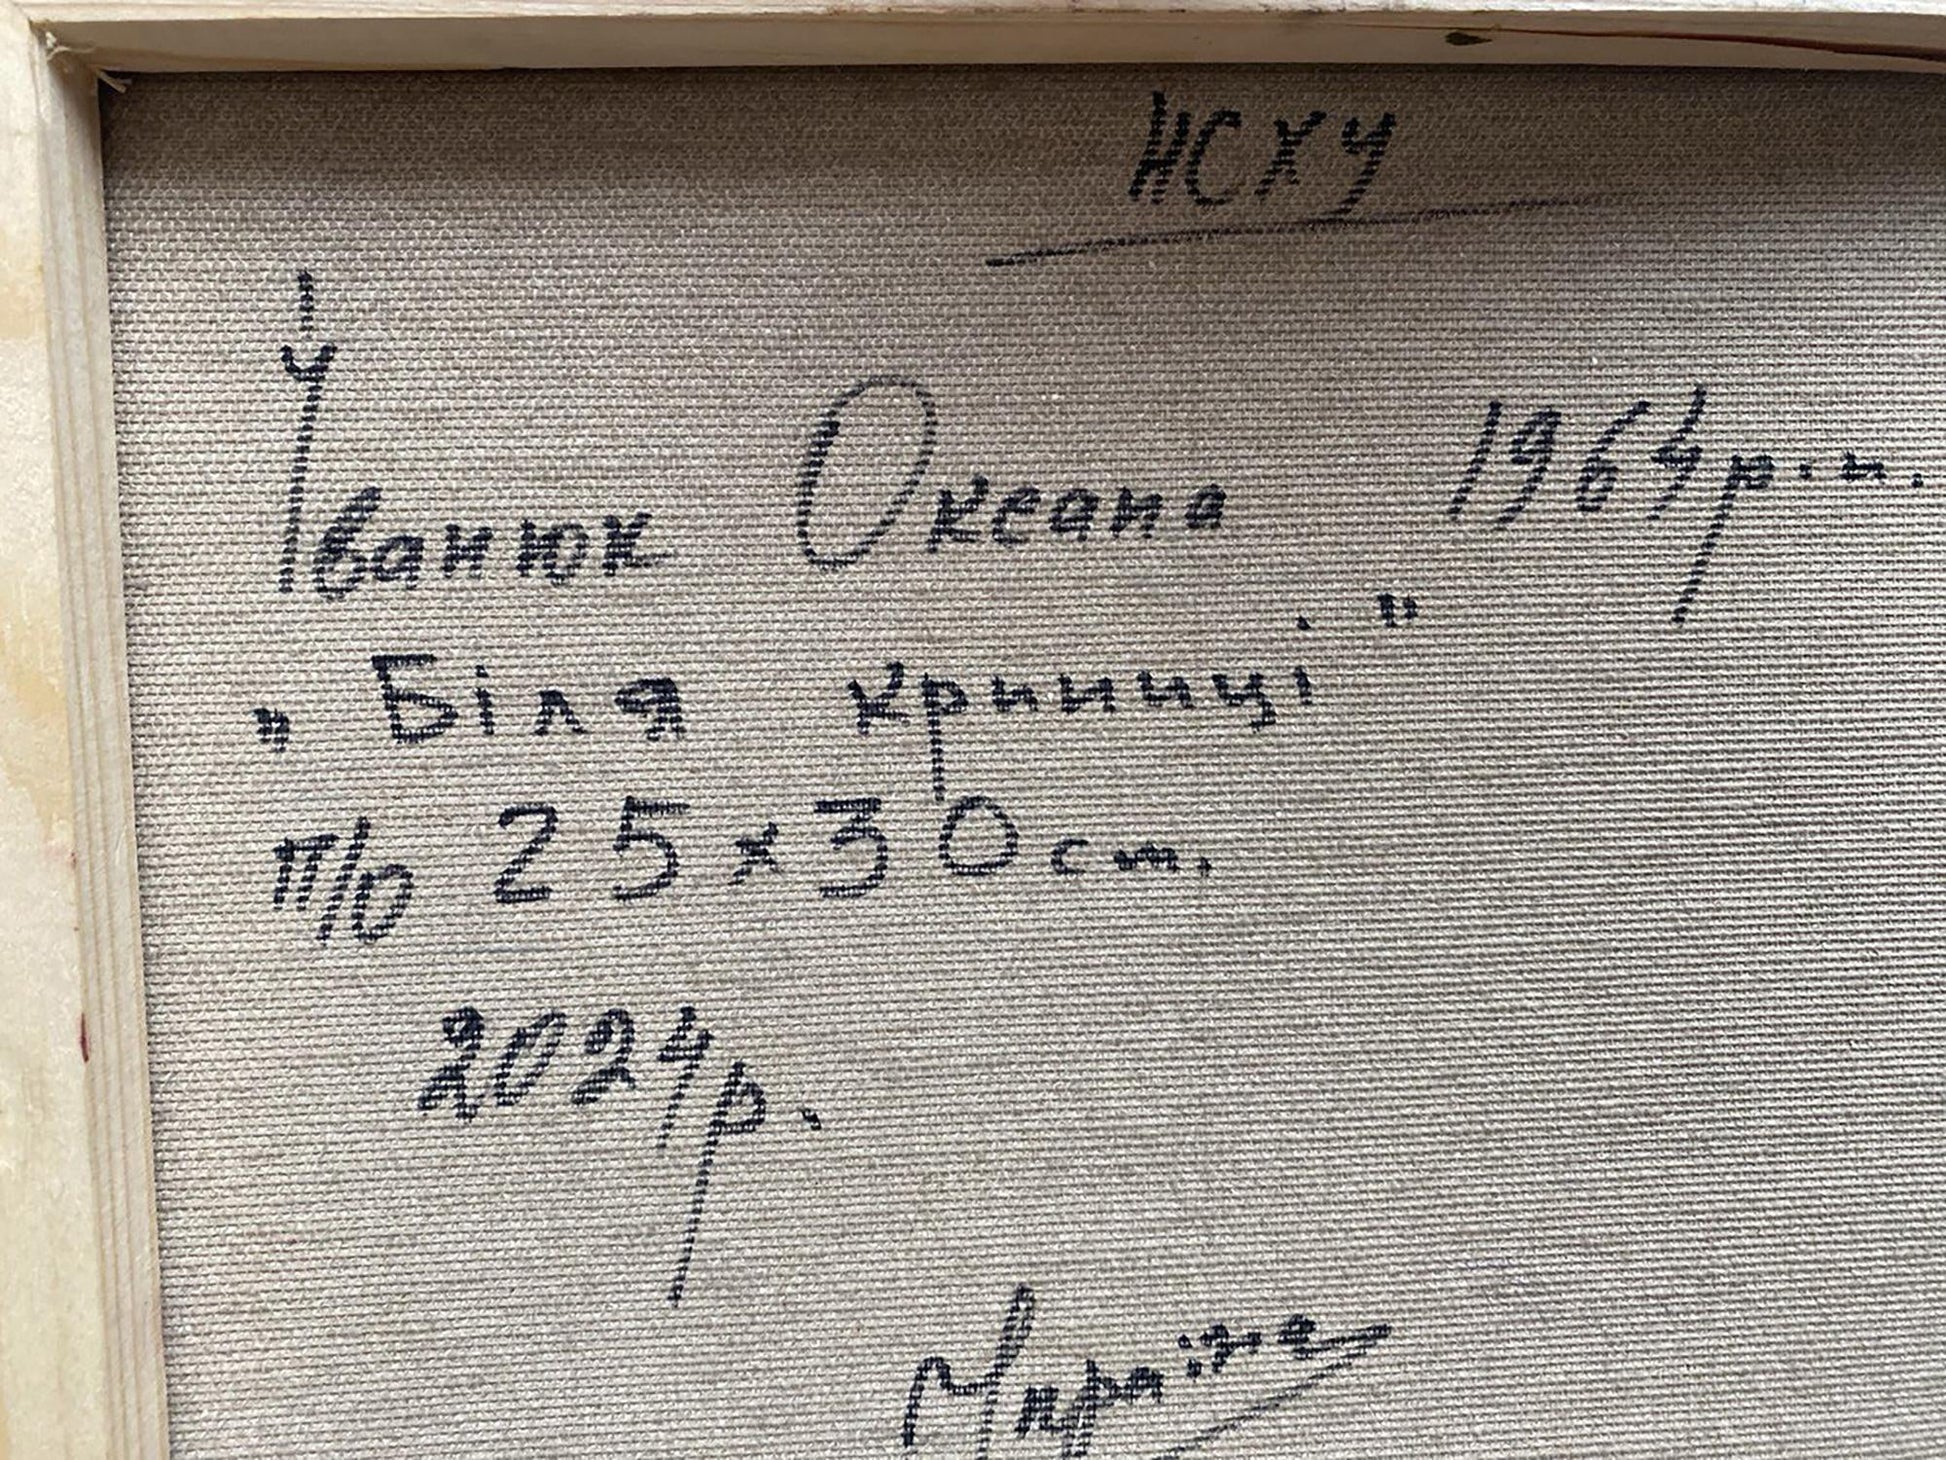 НСХУ
Іванюк Океана 1964 р.н.
„Біля криниці"
п/о 25х30 см.
2024р.
Україна